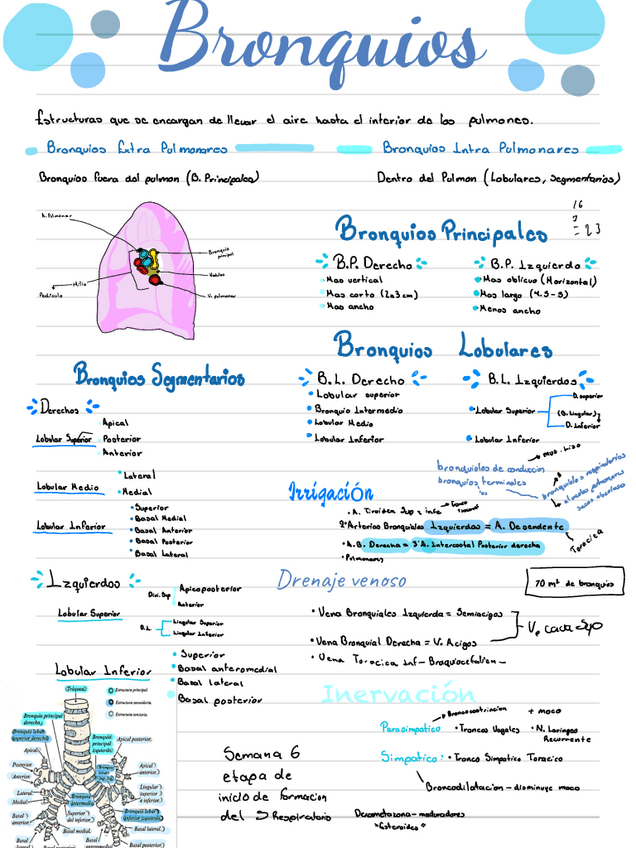 Bronquios
Estructuras que se encargan de llevar el aire hasta el interior de los pulmones.
Bronquios Extra Pulmonares
Bronquios Intra Pulmonares
Bronquios fuera del pulmon (B. Principales)
Dentro del Pulmon (Lobulares, segmentarios)
A. Pulmonar
Bronquio
principal
Hilio
Nodulos
Pediculo
V. pulmonar
16
= 23
Bronquios Principales
B.P. Derecho
B.P. Izquierdo
Mas vertical
Mas corto (2a3cm)
Mas ancho
Mas oblicuo (Horizontal)
Mas largo (4.5-5)
Menos ancho
Bronquios Lobulares
B.L. Derecho
Lobular superior
Bronquio Intermedio
Lobular Medio
Lobular Inferior
B.L. Izquierdos
Lobular Superior
D. superior
(B. Lingular)
D. Inferior
Lobular Inferior
Bronquios Segmentarios
Derechos
Lobular Superior
Apical
Posterior
Anterior
Lobular Medio
Lateral
Medial
Lobular Inferior
Superior
Basal Medial
Basal Anterior
Basal Posterior
Basal Lateral
Izquierdos
Lobular Superior
Div. Sup
Apicoposterior
Anterior
D.L
Lingular Superior
Lingular Inferior
Lobular Inferior
Superior
Basal anteromedial
Basal lateral
Basal posterior
mus. liso
bronquiolos de conduccion
bronquios terminales
bronquiolos respiratorios
Irrigación
A. Tiroidea Sup e infe
2 Arterias Bronquiales Izquierdas = A. Decendente
Toracica
A.B. Derecha = 3ª A. Intercostal Posterior derecha
Pulmonares
Drenaje venoso
70 m² de bronquio
Vena Bronquiales Izquierda = Semiacigos
Vena Bronquial Derecha = V. Acigos
V. cava Sup
Vena Toracica Inf - Braquiocefalica
Inervación
Broncoconstriccion + moco
Parasimpatico
Troncos Vagales
N. Laringeo
Recurrente
Simpatico:
Tronco Simpatico Toracico
Broncodilatacion - disminuye moco
Semana 6
etapa de
inicio de formacion
del S Respiratorio
Dexametazona - maduradores
"Esteroides"
Tráquea
Estructura principal.
Estructura secundaria.
Estructura terciaria.
Bronquio principal
derecho
Bronquio principal
izquierdo
Apical posterior.
Apical
Posterior
Anterior
Lateral
Medial
Lingular
superior
e inferior.
Superior
del inferior.
Basal medial.
Basal lateral